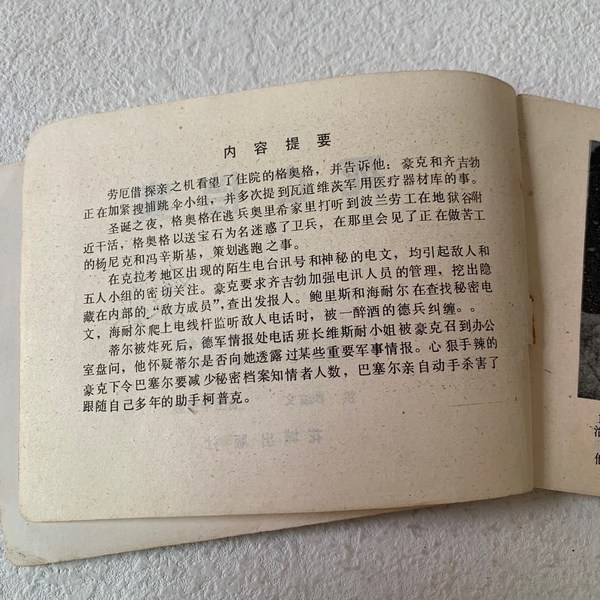 内容提要
劳厄借探亲之机看望了住院的格奥格，并告诉他：豪克和齐吉勃
正在加紧搜捕跳伞小组，并多次提到瓦道维茨军用医疗器材库的事。
圣诞之夜，格奥格在逃兵奥里希家里打听到波兰劳工在地狱谷附
近干活，格奥格以送宝石为名迷惑了卫兵，在那里会见了正在做苦工
的杨尼克和冯辛斯基，策划逃跑之事。
在克拉考地区出现的陌生电台讯号和神秘的电文，均引起敌人和
五人小组的密切关注。豪克要求齐吉勃加强电讯人员的管理，挖出隐
藏在内部的“敌方成员”，查出发报人。鲍里斯和海耐尔在查找秘密电
文，海耐尔爬上电线杆监听敌人电话时，被一醉酒的德兵纠缠。。
蒂尔被炸死后，德军情报处电话班长维斯耐小姐被豪克召到办公
室盘问，他怀疑蒂尔是否向她透露过某些重要军事情报。心狠手辣的
豪克下令巴塞尔要减少秘密档案知情者人数，巴塞尔亲自动手杀害了
跟随自己多年的助手柯普克。
他